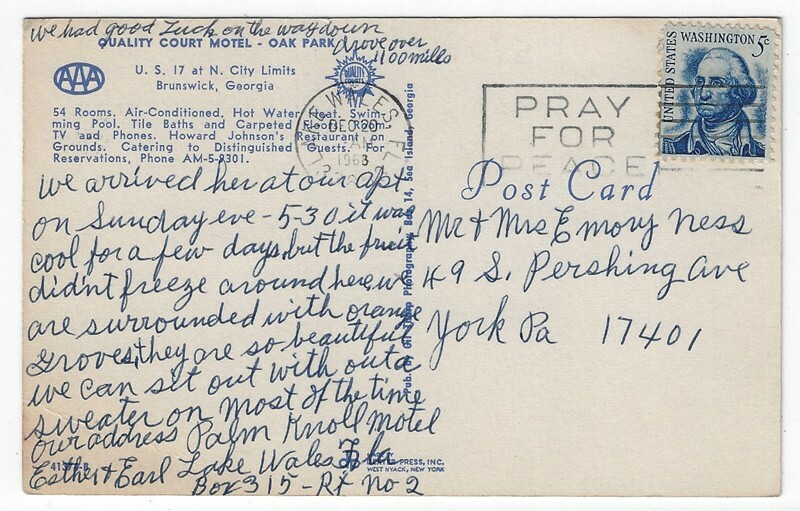 we had good luck on the way down
drove over
1100 miles
QUALITY COURT MOTEL - OAK PARK
AAA
U. S. 17 at N. City Limits
Brunswick, Georgia
QUALITY COURTS
54 Rooms. Air-Conditioned, Hot Water Heat. Swim-
ming Pool. Tile Baths and Carpeted Floors. Room
TV and Phones. Howard Johnson's Restaurant on
Grounds. Catering to Distinguished Guests. For
Reservations, Phone AM-5-9301.
we arrived her at our apt
on Sunday eve - 5-30 it was
cool for a few days, but the fruit
didn't freeze around here, we
are surrounded with orange
groves, they are so beautiful
we can sit out with out a
sweater on most of the time
our address Palm Knoll Motel
Esther & Earl Lake Wales Fla
Box 315 - Rt no 2
Photography, Box 14, Sea Island, Georgia
PRESS, INC.
WEST NYACK, NEW YORK
LAKE WALES, FL
DEC 20
1968
PRAY
FOR
PEACE
UNITED STATES
WASHINGTON 5c
Post Card
Mr & Mrs Emory Ness
49 S. Pershing Ave
York Pa 17401